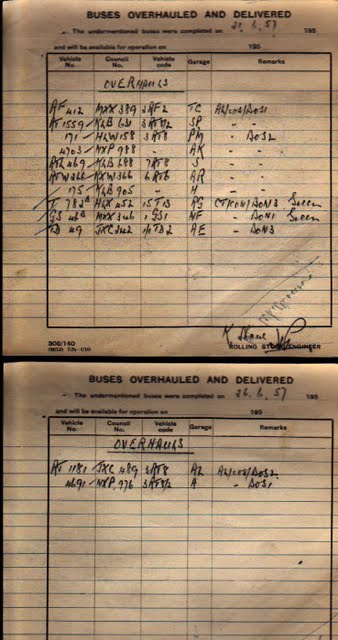 BUSES OVERHAULED AND DELIVERED
The undermentioned buses were completed on 21.6.57 195
and will be available for operation on 195
Vehicle No. Council No. Vehicle code Garage Remarks
OVERHAULS
RF 412 MXX 389 2RF2 TC AL/COS/DOS1
RT 1559 KLB 631 3RT8/2 SP - "
171 HLW 158 3RT8 PM - DOS2
4703 NXP 988 - AK - "
RTL 469 KLB 688 7RT8 S - "
RTW 366 KXW 366 6RT6 AR - "
175 KLB 905 - H - "
T 782B HLX 452 15T13 RG CT/CON/DON3 Green
GS 46 MXX 346 1GS1 NF - DON1 Green
TD 49 JXC 242 1/1TD2 AE - DON3
ROLLING STOCK ENGINEER
BUSES OVERHAULED AND DELIVERED
The undermentioned buses were completed on 26.6.57 195
and will be available for operation on 195
Vehicle No. Council No. Vehicle code Garage Remarks
OVERHAULS
RT 1181 JXC 489 3RT8 AL AL/COS/DOS2
4691 NXP 976 3RT8/2 A - DOS1